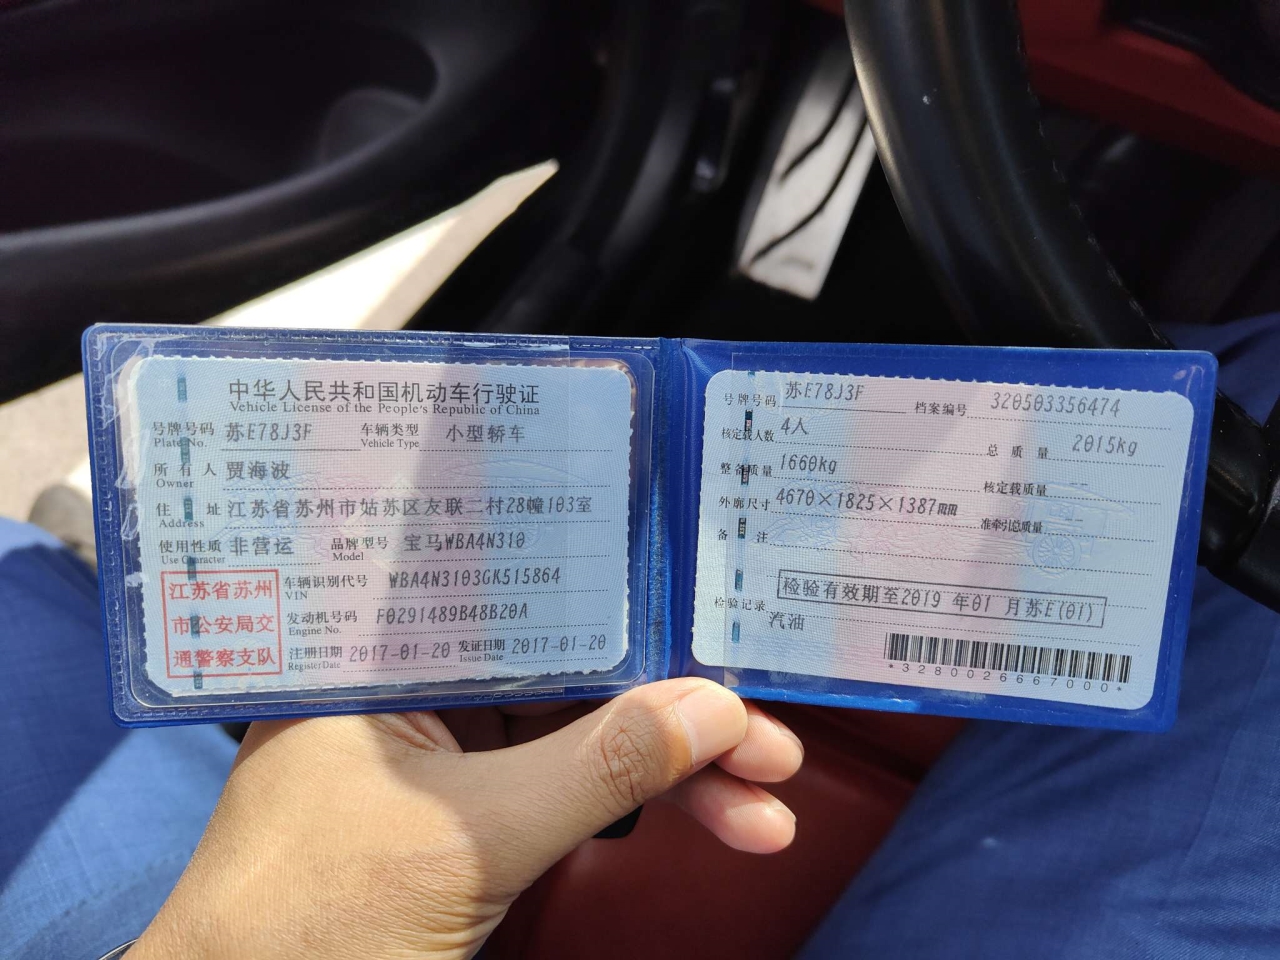 中华人民共和国机动车行驶证
Vehicle License of the People's Republic of China
号牌号码 苏E78J3F 车辆类型 小型轿车
Plate No. Vehicle Type
所有人 贾海波
Owner
住址 江苏省苏州市姑苏区友联二村28幢103室
Address
使用性质 非营运 品牌型号 宝马WBA4N310
Use Character Model
江苏省苏州市公安局交通警察支队
车辆识别代号 WBA4N3103GK515864
VIN
发动机号码 F0291489B48B20A
Engine No.
注册日期 2017-01-20 发证日期 2017-01-20
Register Date Issue Date
号牌号码 苏E78J3F 档案编号 320503356474
核定载人数 4人 总质量 2015kg
整备质量 1660kg 核定载质量 --
外廓尺寸 4670×1825×1387mm 准牵引总质量 --
备注
检验记录 检验有效期至2019年01月苏E(01)
汽油
*3280026667000*